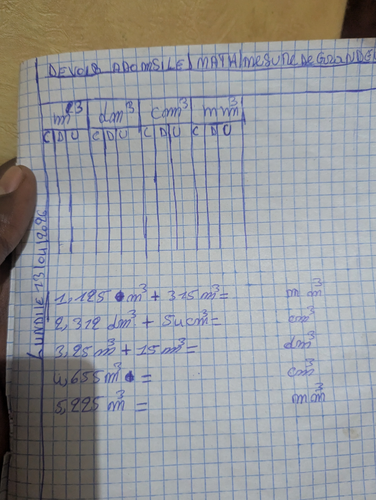 DEVOIR ADOMSILE MATH mesure De GranDE
m³ dm³ com³ mm³
C D U C D U C D U C D U
LUNDIE 13/04/2026
1,125 m³ + 315m³= m m³
2,312 dm³ + 54cm³= cm³
3,25m³ + 15m³= dm³
4,655m³ = cm³
5,225 m³ = mm³